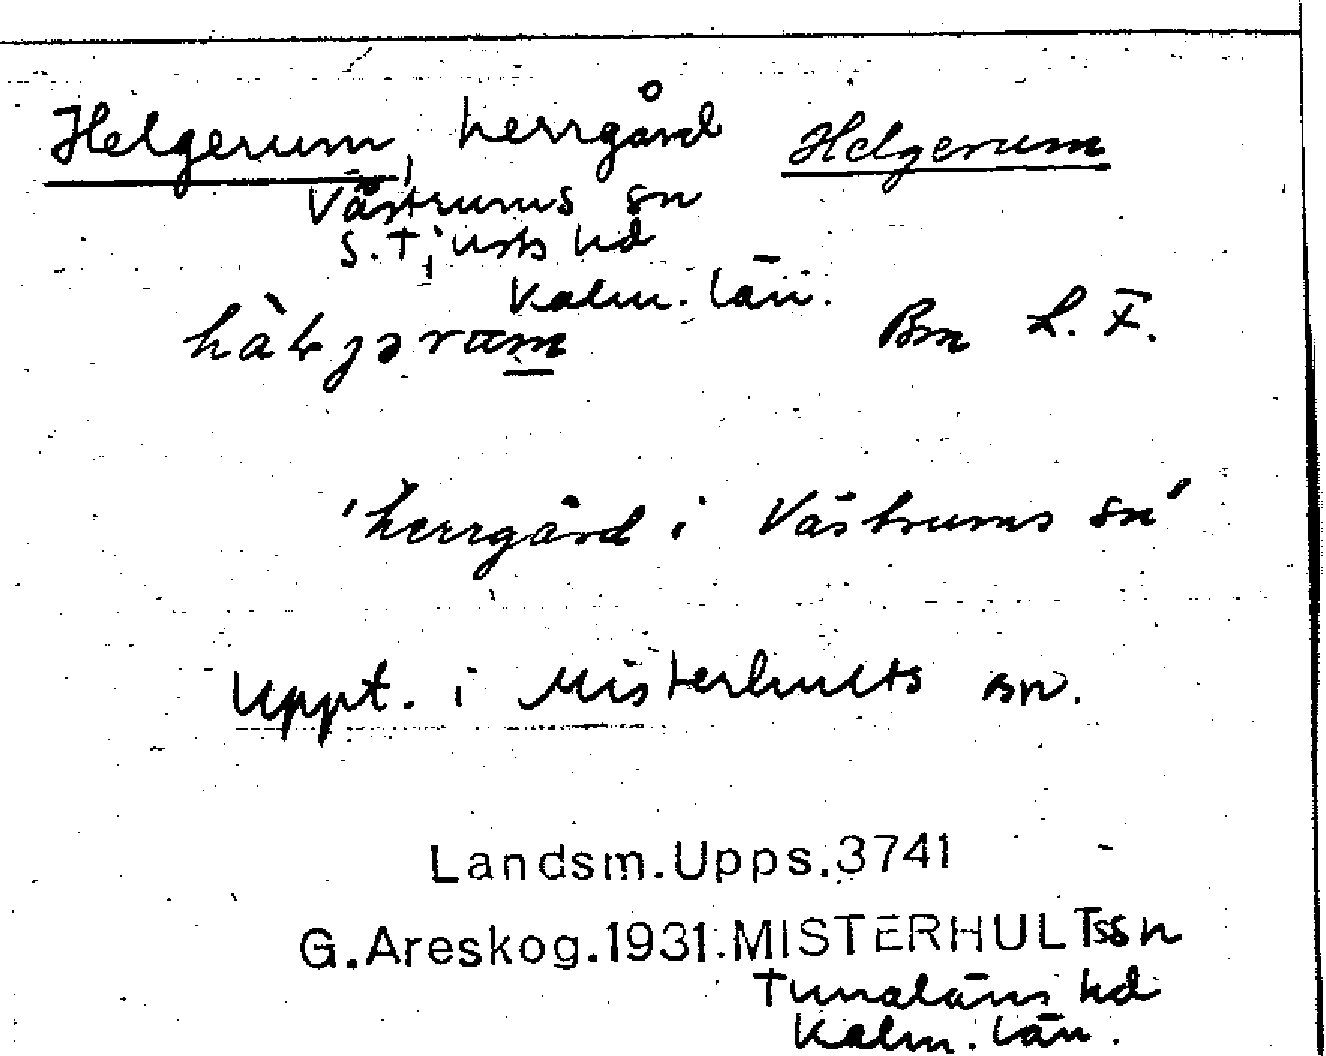 Helgerum, herrgård Helgerum
Västrums sn
S. Tjusts hd
Kalm. län.
Bm L. F.
'herrgård i Västrums sn'
Uppt. i Misterhults sn.
Landsm.Upps.3741
G.Areskog.1931.MISTERHULTS sn
Tunaläns hd
Kalm. län.